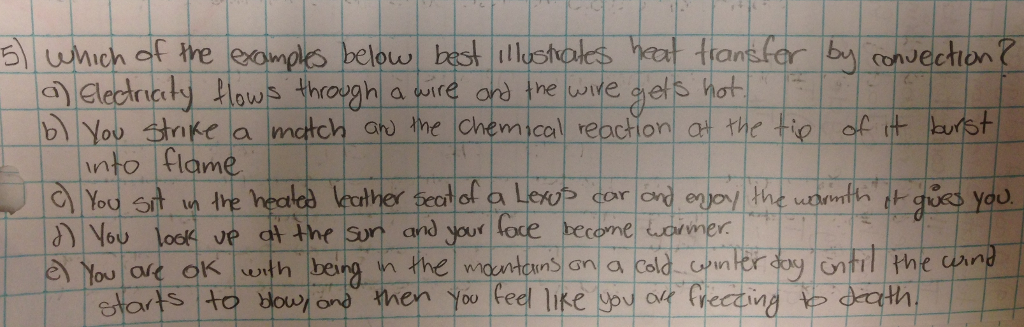 5) Which of the examples below best illustrates heat transfer by convection?
a) Electricity flows through a wire and the wire gets hot.
b) You strike a match and the chemical reaction at the tip of it burst
into flame
c) You sit in the heated leather seat of a Lexus car and enjoy the warmth it gives you.
d) You look up at the sun and your face become warmer.
e) You are OK with being in the mountains on a cold winter day until the wind
starts to blow, and then you feel like you are freezing to death.